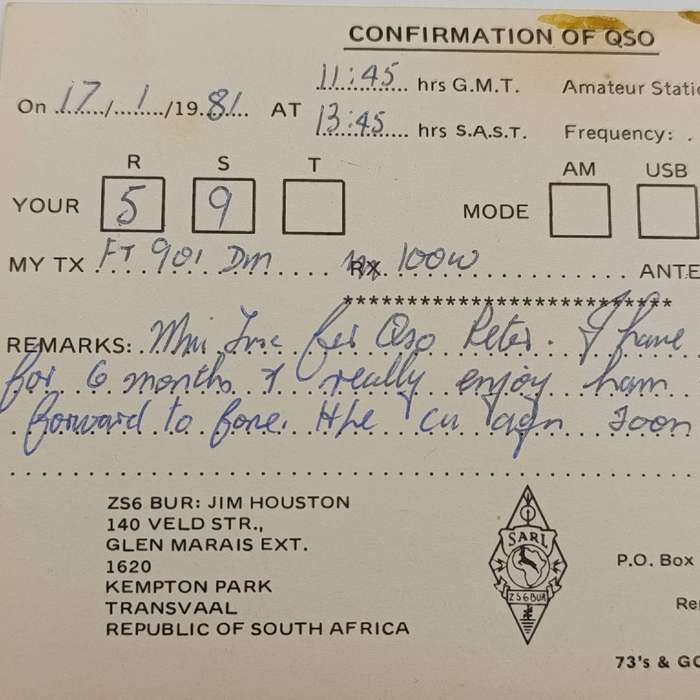 CONFIRMATION OF QSO
On 17/1/1981 AT 11:45 hrs G.M.T. Amateur Statio
13:45 hrs S.A.S.T. Frequency: .
R S T AM USB
YOUR 5 9 MODE
MY TX FT 901 DM RX 100W ANTE
*************************
REMARKS: Mni Tnx fer Qso Peter. I have
for 6 months & really enjoy ham
forward to fone. Hpe cu agn soon
ZS6 BUR: JIM HOUSTON
140 VELD STR.,
GLEN MARAIS EXT.
1620
KEMPTON PARK
TRANSVAAL
REPUBLIC OF SOUTH AFRICA
SARL
ZS6BUR
P.O. Box
Re
73's & GO